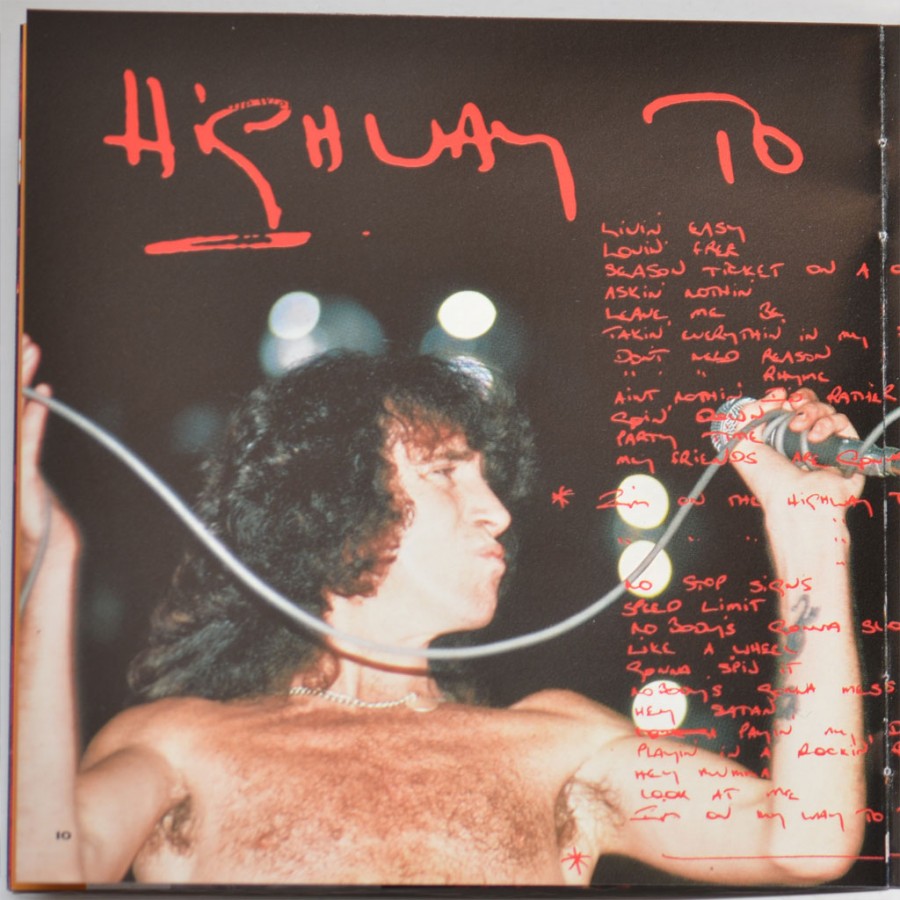 HiGHWAY TO
LIVIN' EASY
LOVIN' FREE
SEASON TICKET ON A
ASKIN' NOTHIN'
LEAVE ME BE
TAKIN' EVERYTHIN' IN MY
DON'T NEED REASON
" " " RHYME
AINT NOTHIN' RATHER
GOIN' DOWN
PARTY TIME
MY FRIENDS ARE GONNA
* I'm ON THE HiGHWAY T
" " " "
"
NO STOP SiGNS
SPEED LIMIT
NOBODYS GONNA SLO
LIKE A WHEEL
GONNA SPIN IT
NOBODYS GONNA MESS
HEY SATAN
PAYIN' MY D
PLAYIN IN A ROCKIN'
HEY MUMMA
LOOK AT ME
I'm ON MY WAY TO
*
10